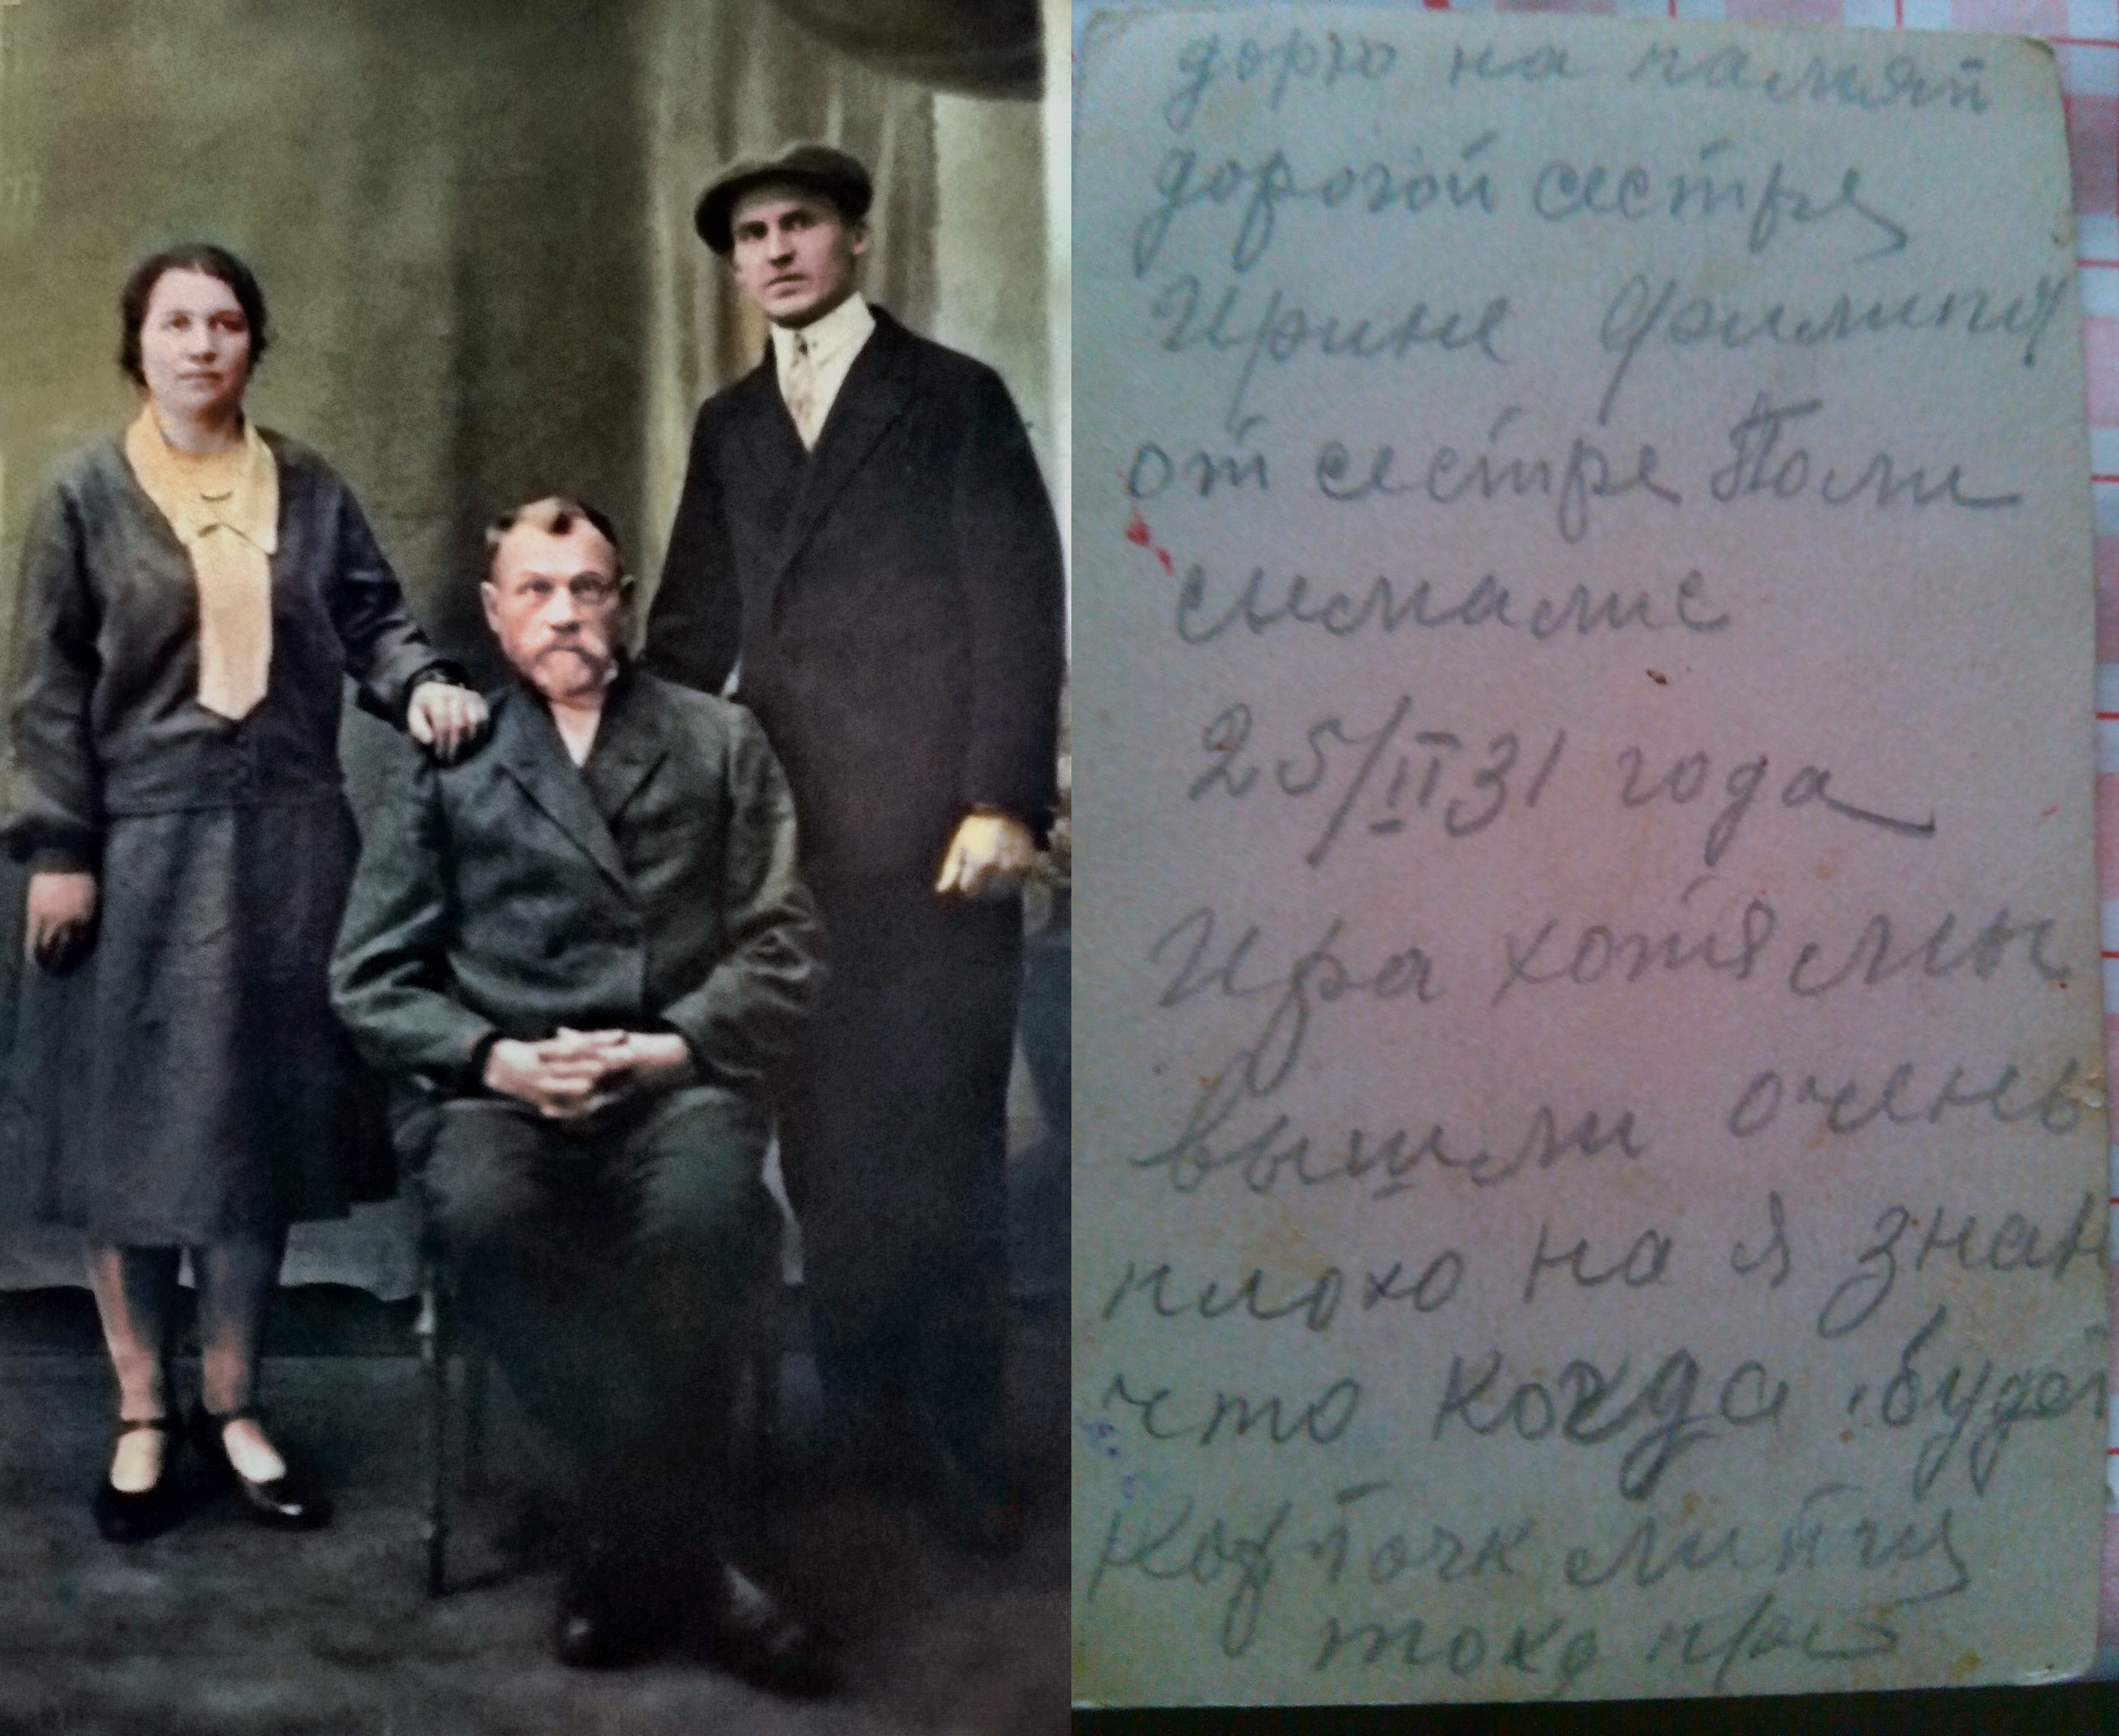 дорю на памяти
дорогой сестре
Ирине Филипп
от сестре Поли
сымалис
25/II 31 года
Ира хотя мы
вышли очень
плохо на я знаю
что когда будет
карточк